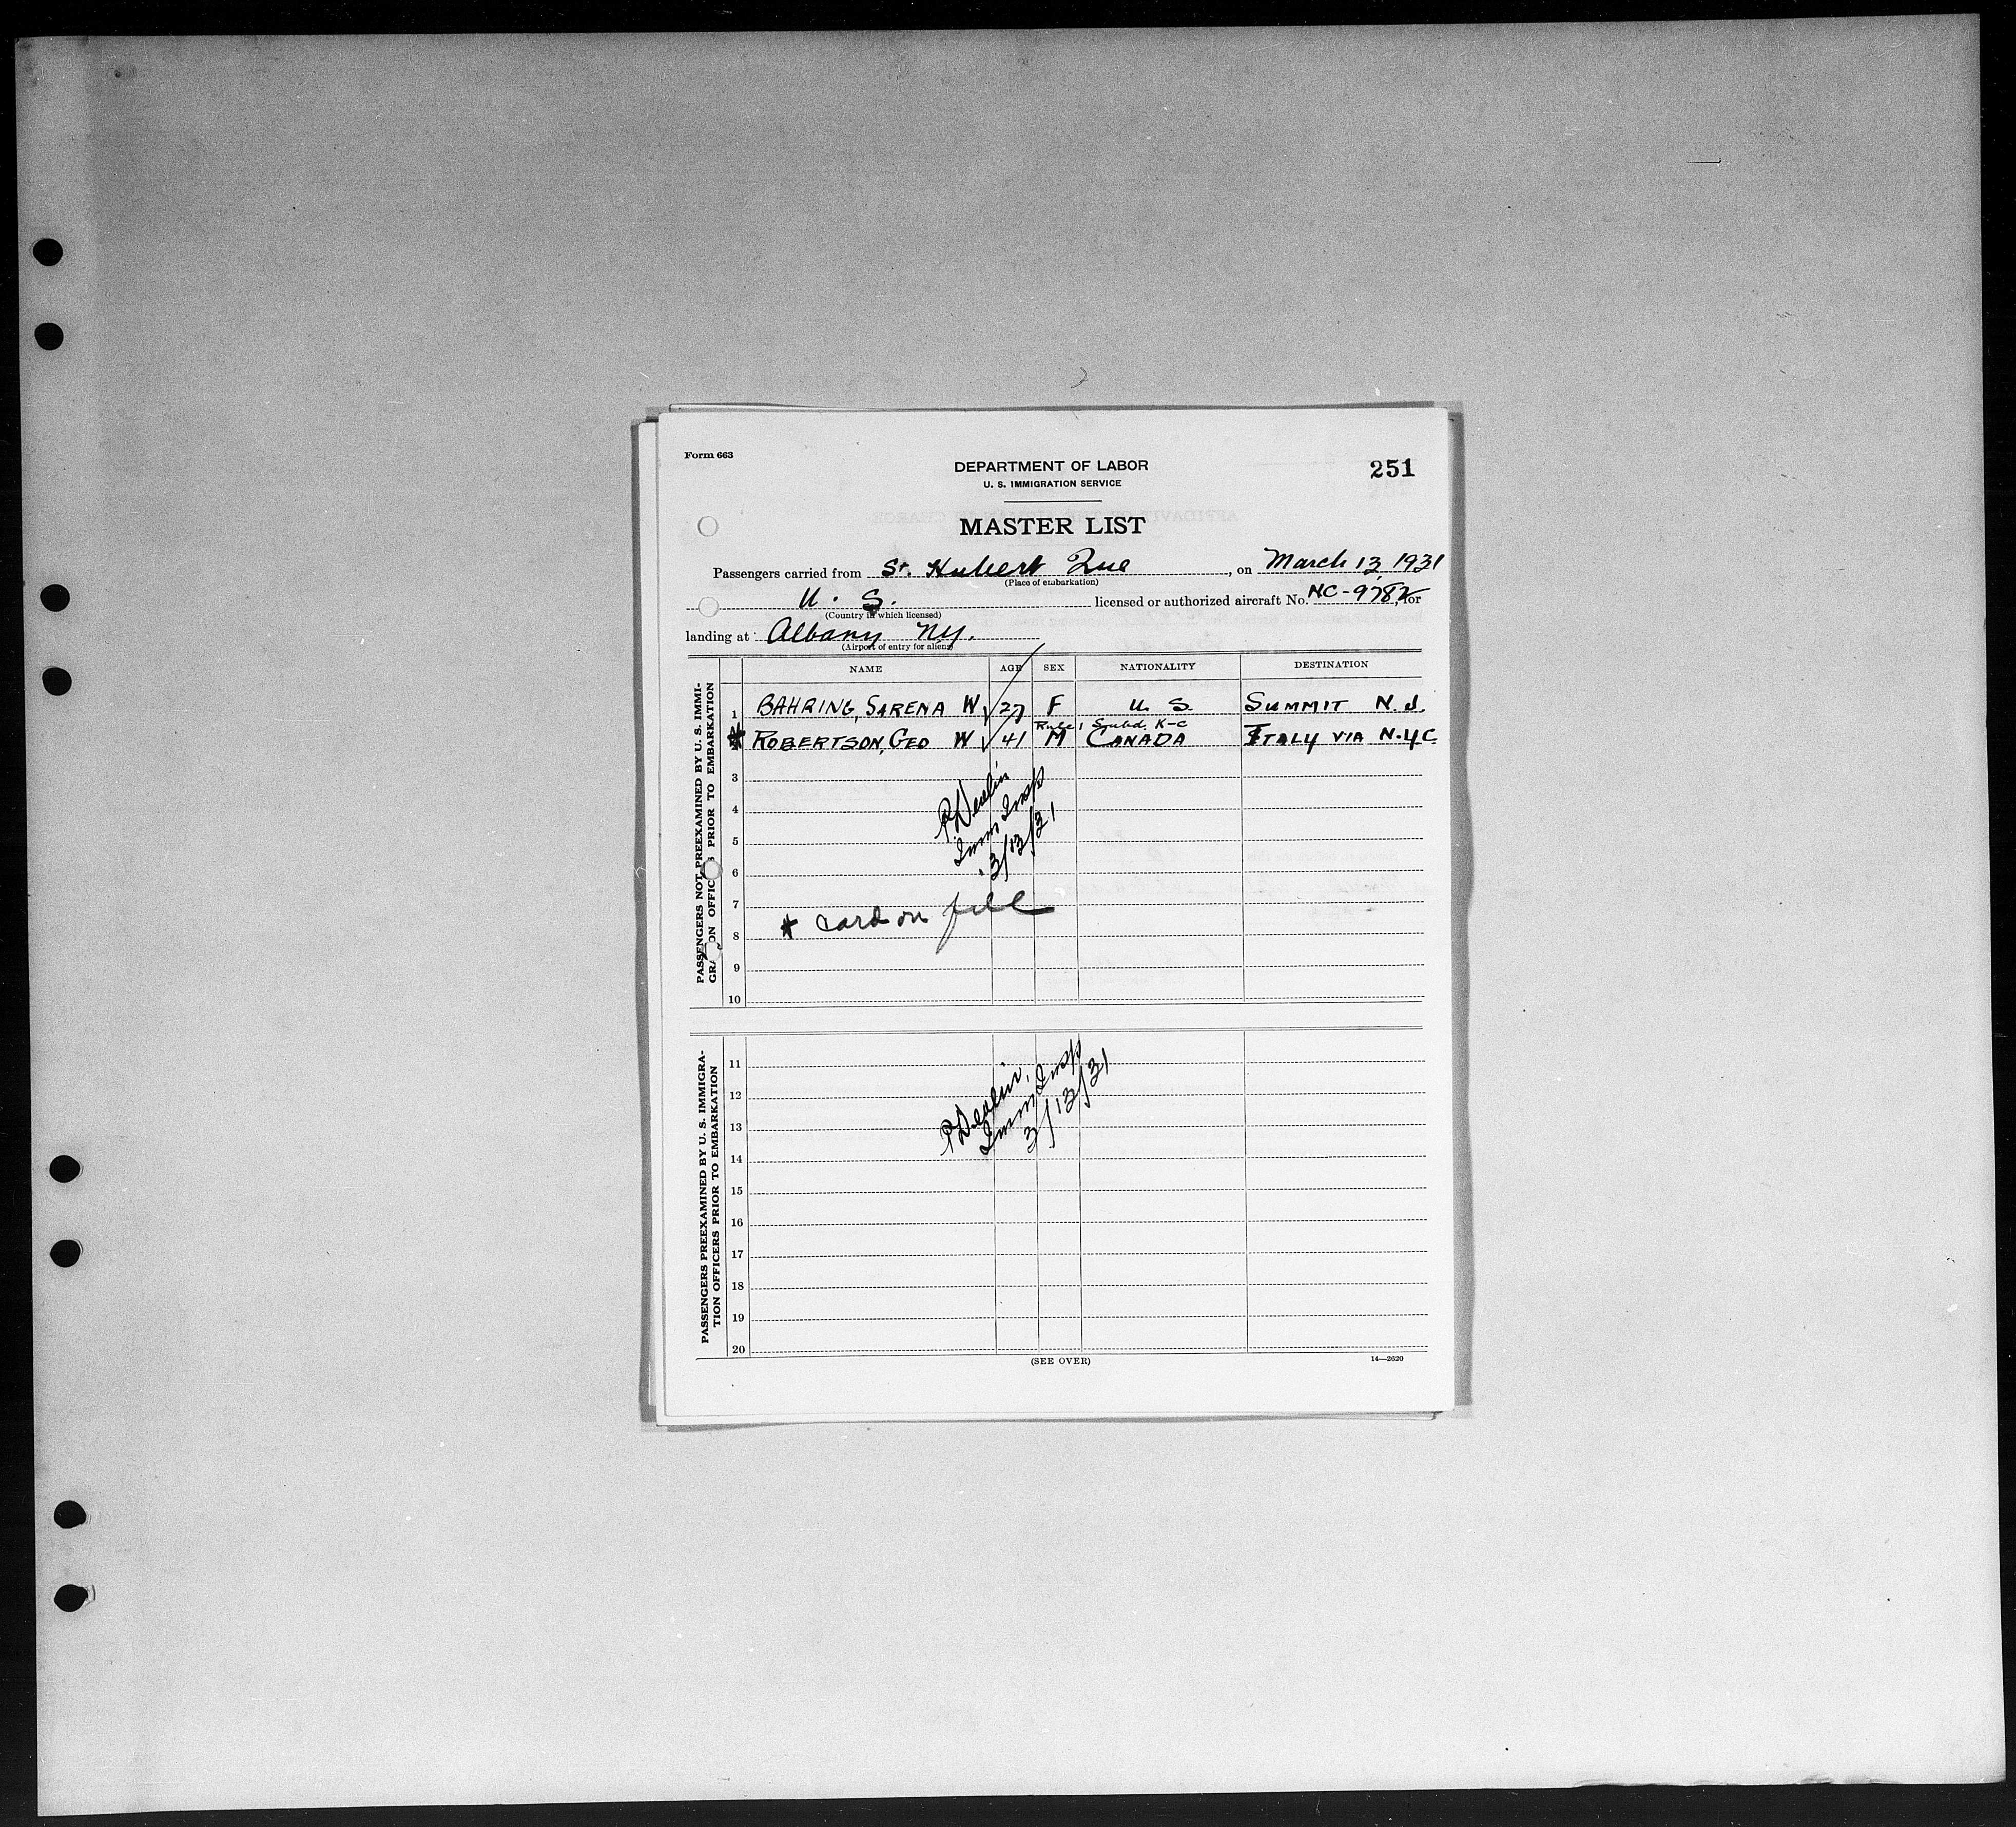 Form 663
DEPARTMENT OF LABOR
U. S. IMMIGRATION SERVICE
251
MASTER LIST
Passengers carried from St. Hubert Que, on March 13, 1931
(Place of embarkation)
U. S. licensed or authorized aircraft No. NC-9782, for
(Country in which licensed)
landing at Albany N.Y.
(Airport of entry for aliens)
NAME AGE SEX NATIONALITY DESTINATION
PASSENGERS NOT PREEXAMINED BY U. S. IMMI-
GRATION OFFICERS PRIOR TO EMBARKATION
1 BAHRING, SARENA W 27 F U. S. SUMMIT N. J.
Rule 1 Subd. K-C
* ROBERTSON, GEO W 41 M CANADA ITALY VIA N.Y.C.
3
4
5
6
7
8
9
10
P Devlin
Imm Insp
3/13/31
* card on file
PASSENGERS PREEXAMINED BY U. S. IMMIGRA-
TION OFFICERS PRIOR TO EMBARKATION
11
12
13
14
15
16
17
18
19
20
P Devlin,
Imm Insp
3/13/31
(SEE OVER)
14—2620